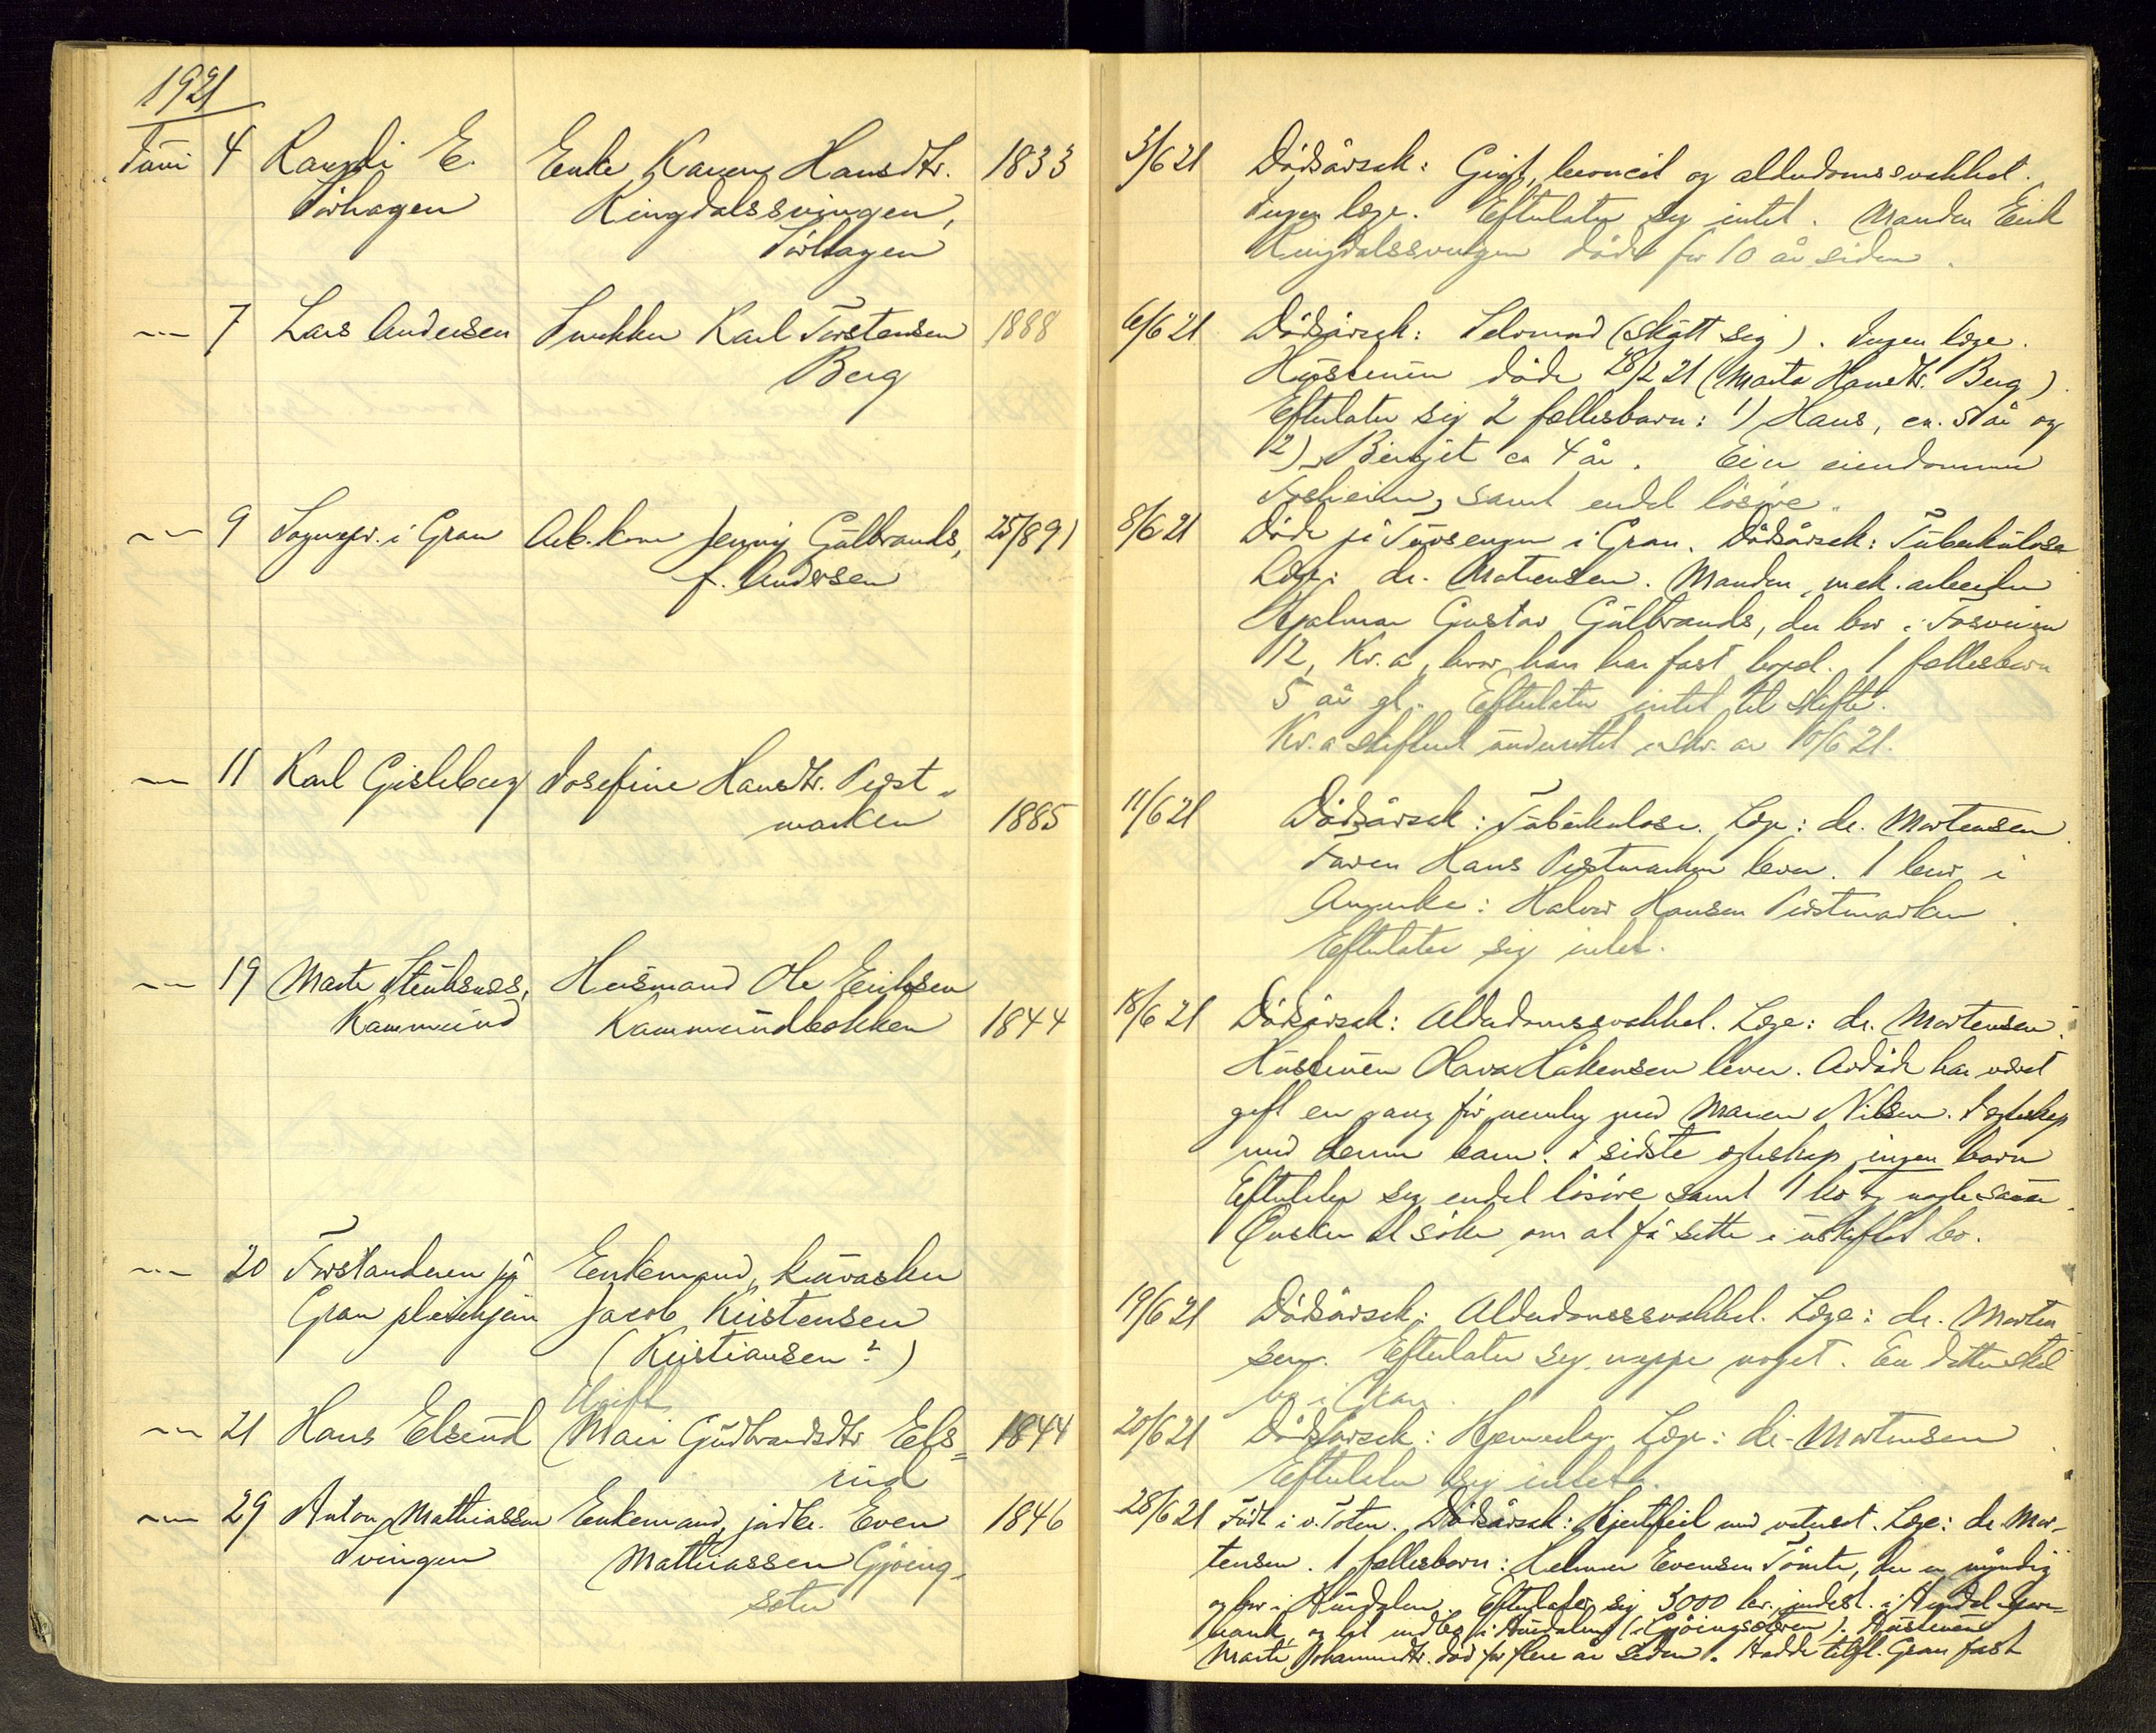 1921
Juni 4 Randi E. Enke Karen Hansdtr. 1833
Sørhagen Ringdalssvingen,
Sørhagen
3/6 21 Dødsårsak: Gigt, broncit og alderdomssvakhet.
Ingen læge. Efterlater sig intet. Manden Erik
Ringdalssvingen døde for 10 år siden.
—"— 7 Lars Andersen Snekker Karl Torstensen 1888
Berg
6/6 21 Dødsårsak: Selvmord (skutt sig). Ingen læge.
Hustruen døde 28/2 21 (Marta Hansdtr. Berg).
Efterlater sig 2 fællesbarn: 1) Hans, ca. 5 år og
2) Birgit ca 4 år. Eier eiendommen
samt endel løsøre.
—"— 9 Sognepr. i Gran Arb.kone Jenny Gulbrands, 25/8 91
f. Andersen
8/6 21 Døde på i Gran. Dødsårsak: Tuberkulose
Læge: dr. Mortensen. Manden, mek. arbeider
Hjalmar Gustav Gulbrands, der bor i Fosveien
12, Kr.a, hvor han har fast bopel. 1 fællesbarn
5 år gl. Efterlater intet til skifte.
Kr.a skifteret underrettet i skr. av 10/6 21.
—"— 11 Karl Gisleberg Josefine Hansdtr. Pirst-
marken 1885
11/6 21 Dødsårsak: Tuberkulose. Læge: dr. Mortensen.
Faren Hans Pirstmarken lever. 1 bror i
Amerika: Halvor Hansen Pirstmarken.
Efterlater sig intet.
—"— 19 Marte Stenhuss, Husmand Ole Eriksen
Rammund Rammundbakken 1844
18/6 21 Dødsårsak: Alderdomssvakhet. Læge: dr. Mortensen.
Hustruen Olava Håkensen lever. Avdøde har været
gift en gang før nemlig med Maren Nilsen. I egteskap
med denne barn. I sidste egteskap ingen barn
Efterlater sig endel løsøre samt 1 ko og nogle sauer.
Ønsker at søke om at få sitte i uskiftet bo.
—"— 20 Forstanderen på Enkemand, kurvasker
Gran pleiehjem Jacob Kristensen
(Kristiansen?)
19/6 21 Dødsårsak: Alderdomssvakhet. Læge: dr. Morten-
sen. Efterlater sig neppe noget. En datter skal
bo i Gran.
—"— 21 Hans Elsrud Ugift
Mari Gudbrandsdtr Els- 1844
rud
20/6 21 Dødsårsak: Hjerneslag. Læge: dr. Mortensen.
Efterlater sig intet.
—"— 29 Anton Mathiassen Enkemand, jordbr. Even 1846
Svingen Mathiassen Gjøving-
sæter
28/6 21 Født i v. Toten. Dødsårsak: Hjertfeil med vatersot. Læge: dr. Mor-
tensen. 1 fællesbarn: Helmer Evensen Tømte, der er myndig
og bor i Hurdalen. Efterlater sig 3000 kr. indest. i Hurdal spare-
bank, og lit indbo i Hurdalen (Gjøvingsæteren). Hustruen
Marte Johannesdtr. død for flere år siden. Hadde tilfl. Gran fast